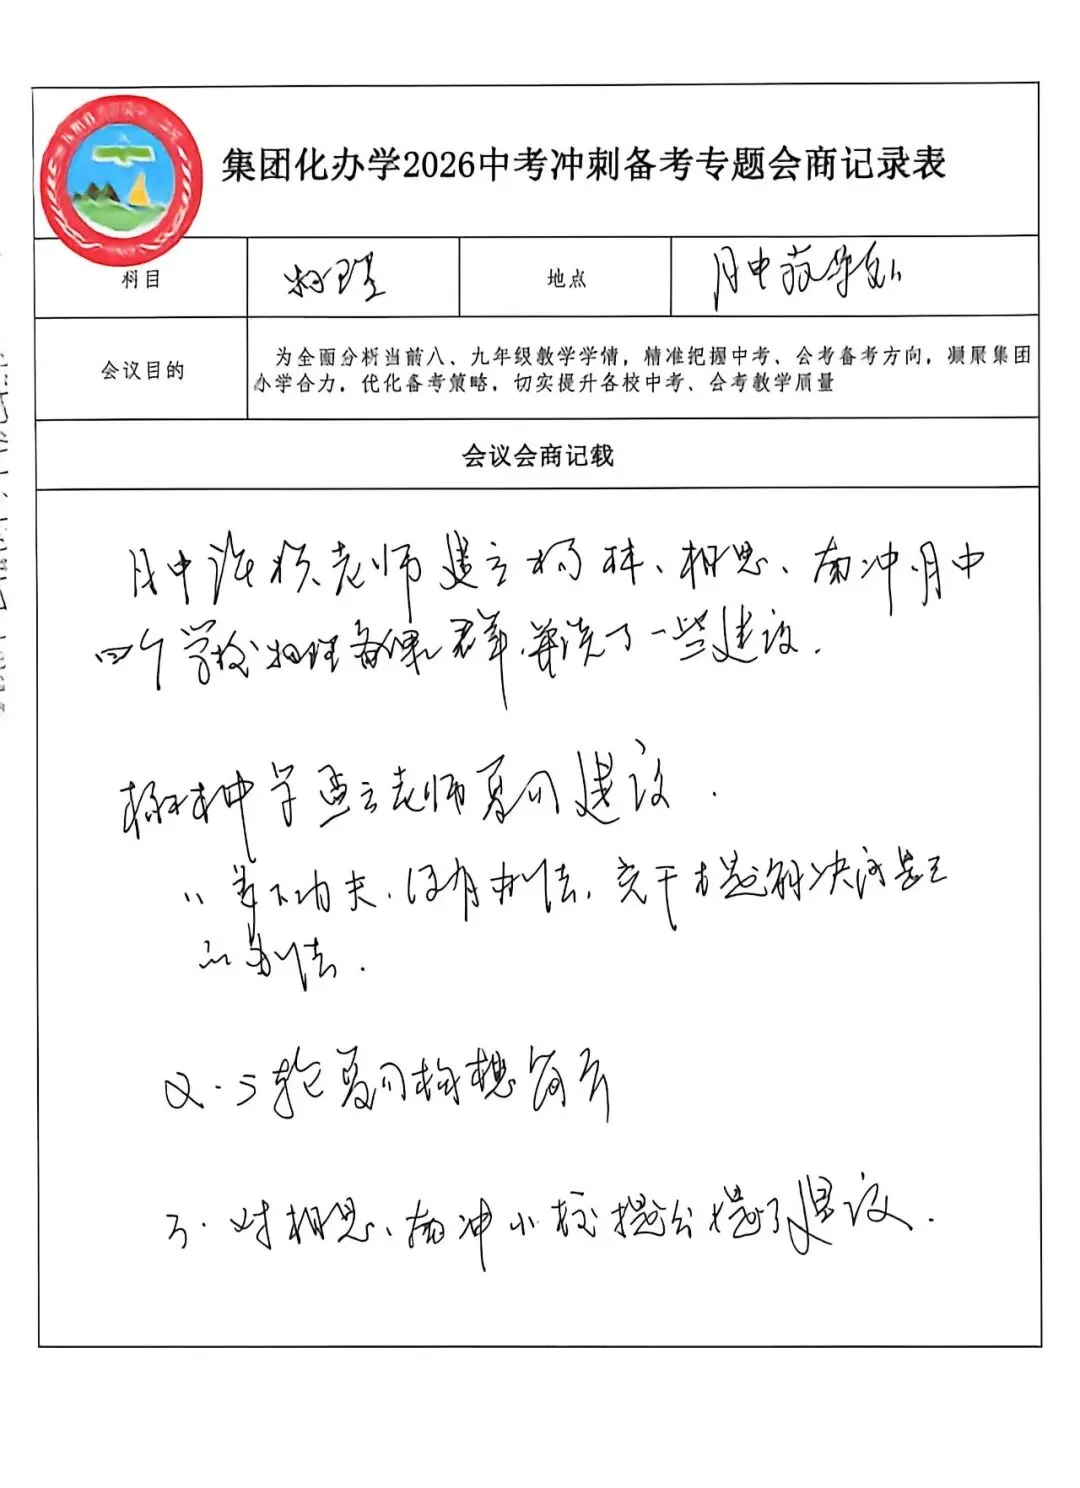 集团化办学2026中考冲刺备考专题会商记录表
科目 物理 地点 月中
会议目的
为全面分析当前八、九年级教学学情，精准把握中考、会考备考方向，凝聚集团
办学合力，优化备考策略，切实提升各校中考、会考教学质量
会议会商记载
月中 老师建立杨林、相思、南冲、月中
四个学校物理备课群，并谈了一些建议.
杨林中学 老师复习建议.
1、 下功夫，没有办法， 解决
的办法.
2. 三轮复习构想简介
3. 对相思、南冲小 提了建议.